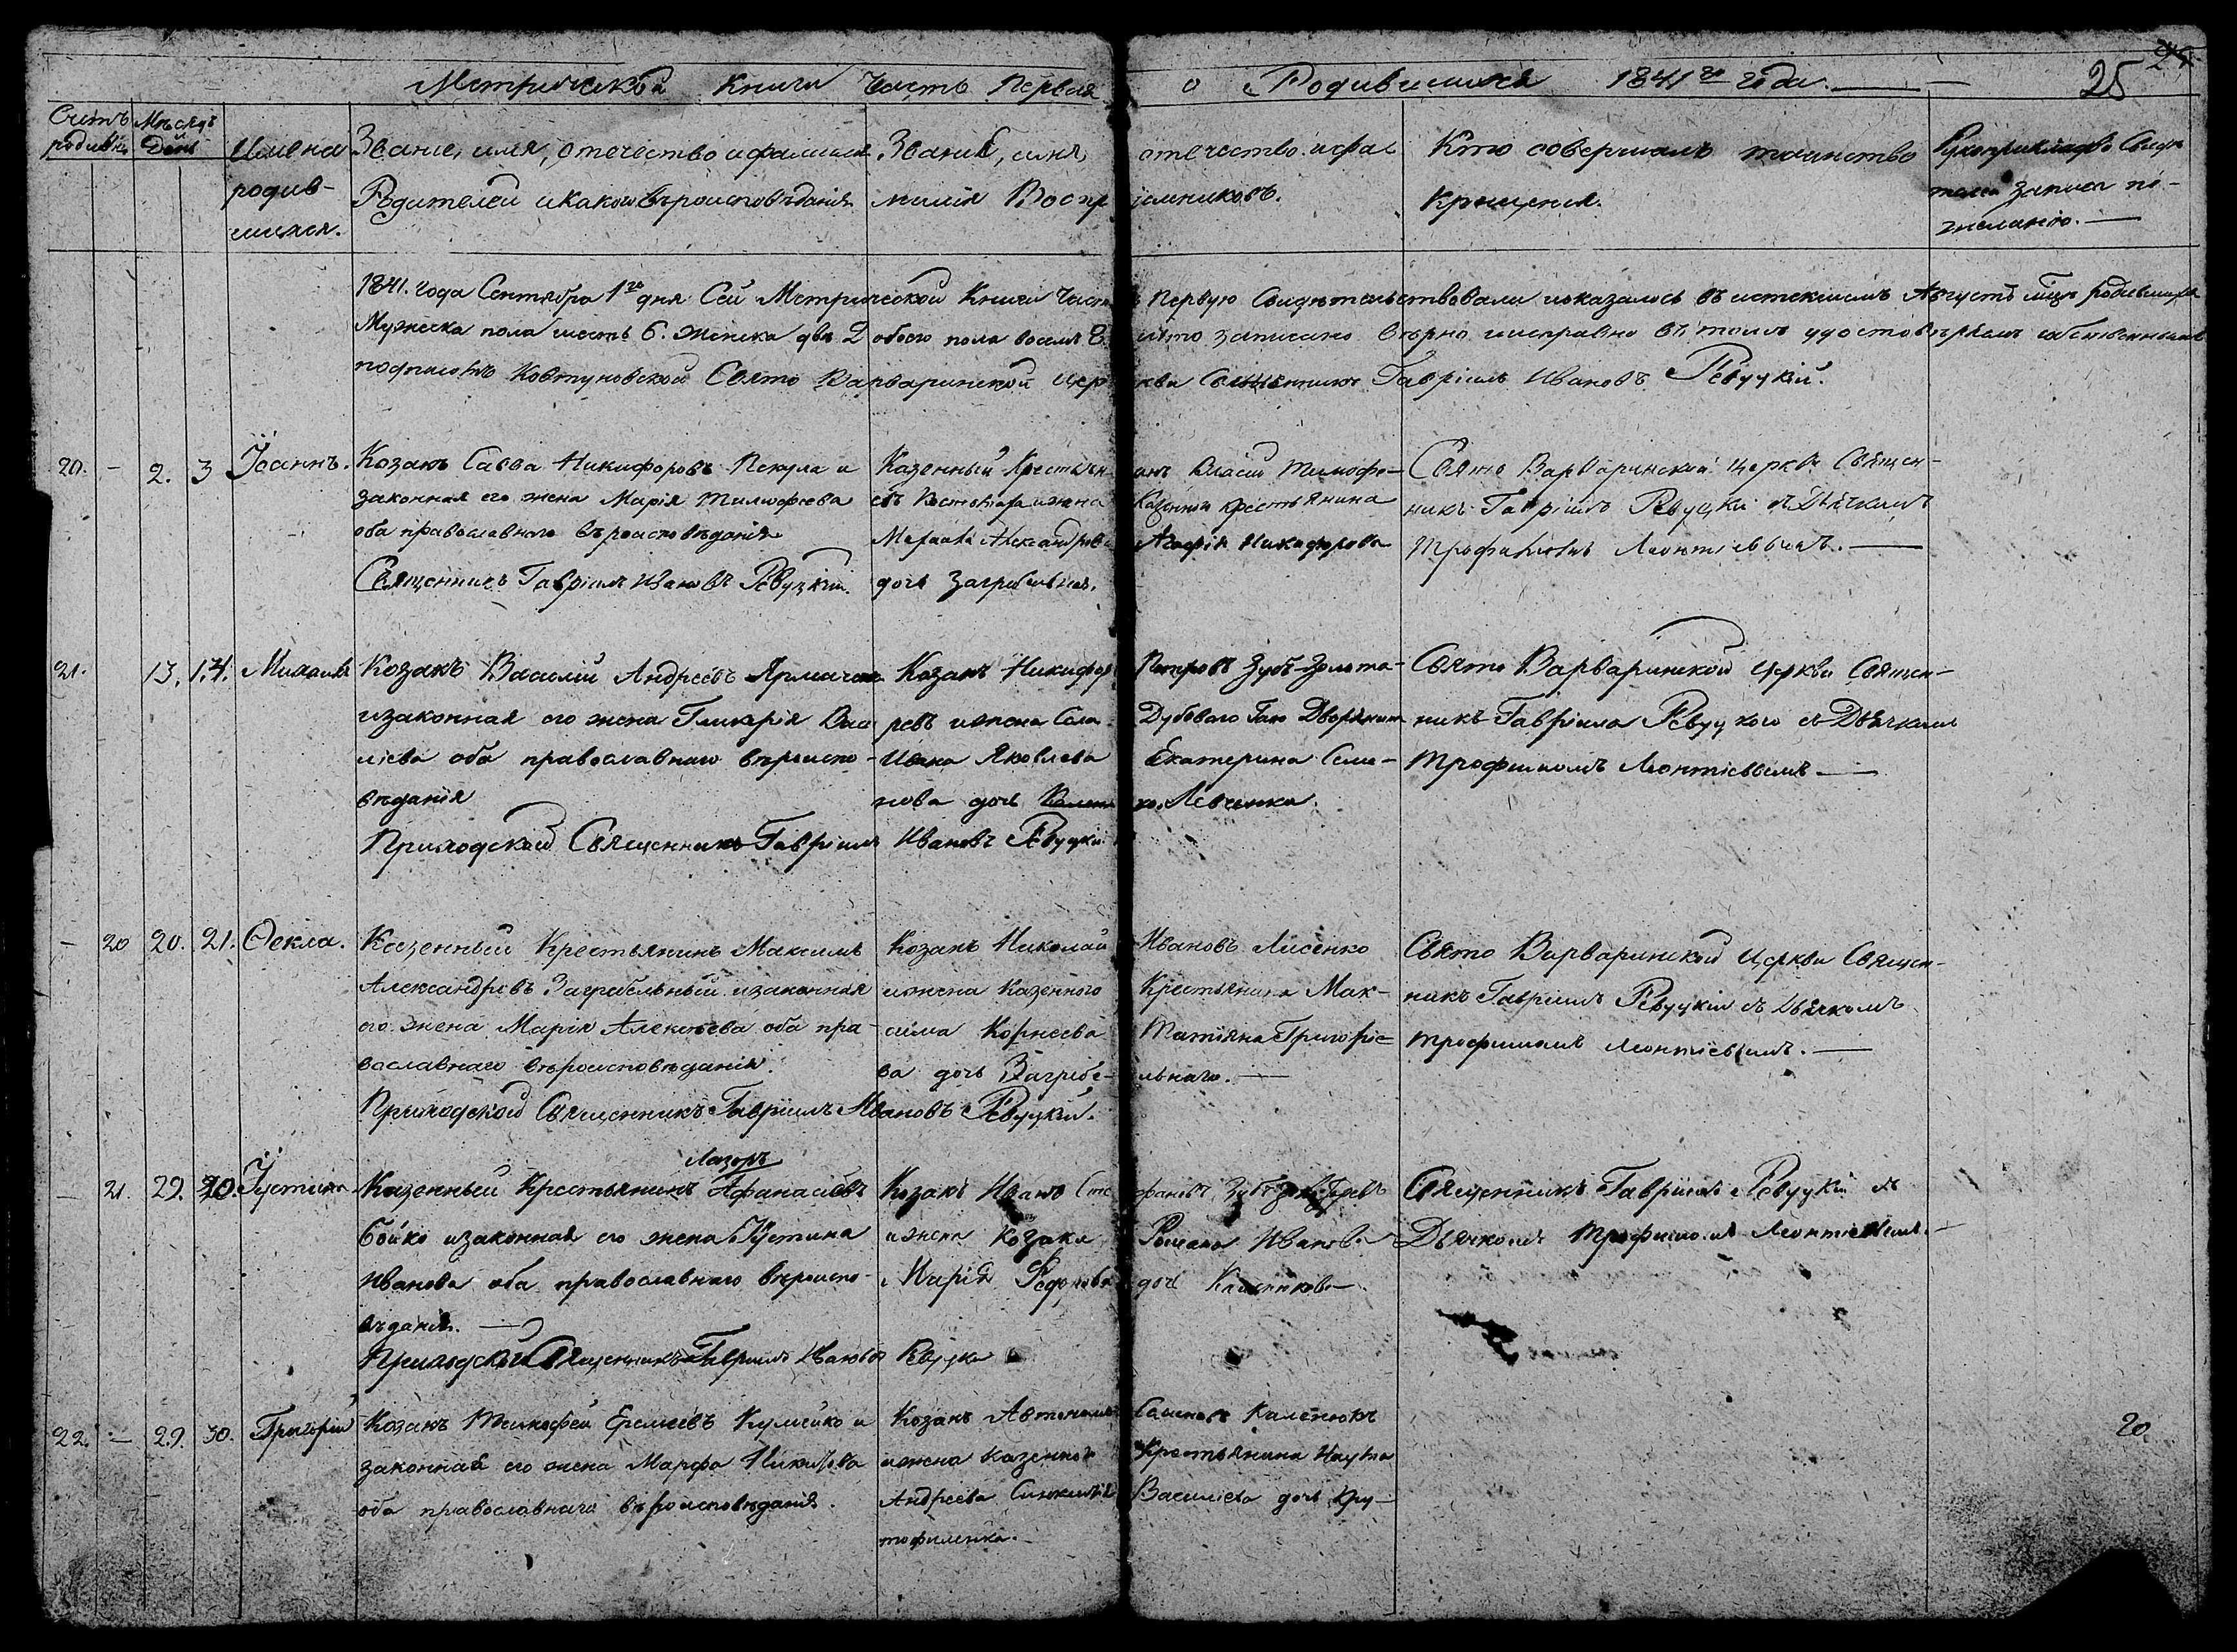 Метрической Книги Часть Первая о Родившихся 1841го года. 25
Счетъ родивш.
Мѣсяцъ День
Имена родив-
шихся.
Званіе, имя, отечество и фамилія
Родителей и какого вѣроисповѣданія
Званіе, имя, отечество и фа
милія Воспріемниковъ.
Кто совершалъ таинство
Крещенія.
Рукоприкладство Свидѣ
телей записи по
желанію.
1841. года Сентября 1го дня Сей Метрической Книги Часть Первую Свидетельствовали и оказалось въ истекшемъ Августѣ мцѣ родившихся
Мужеска пола шесть 6. женска два 2 обоего пола восемъ 8. и что записано вѣрно и исправно въ томъ удостовѣряемъ собственнымъ
подписомъ Ковтуновской Свято Варваринской церкви Священникъ Гавріилъ Ивановъ Ревуцкій.
20. - 2. 3 Іоаннъ.
Козакъ Савва Никифоровъ Пекула и
законная его жена Марія Тимофеева
оба православнаго вѣроисповѣданія
Священникъ Гавріилъ Ивановъ Ревуцкій.
Казенный Крестьянинъ Власій Тимофе-
евъ и жена Казеннаго крестьянина
Александрова Агафія Никифорова
дочь
Свято Варваринской церкви Священ-
никъ Гавріилъ Ревуцкій съ Дьячкомъ
Трофимомъ Леонтіевымъ.
21. 13. 14. Михаилъ
Козакъ Василій Андреевъ
и законная его жена Гликерія Васи
ліева оба православнаго вѣроиспо-
вѣданія
Приходской Священникъ Гавріилъ Ивановъ Ревуцкій
Козакъ Никифоръ Петровъ Зубъ-Золота-
ревъ и жена Села Дубоваго Гаю Дворянина
Ивана Яковлева Екатерина Семе-
нова дочь Левченка.
Свято Варваринской Церкви Священ-
никъ Гавріила Ревуцкого съ Дьячкомъ
Трофимомъ Леонтіевымъ
- 20 20. 21. Ѳекла.
Казенный Крестьянинъ Максимъ
Александровъ Загребельный и законная
его жена Марія Алексѣева оба пра-
вославнаго вѣроисповѣданія.
Приходской Священникъ Гавріилъ Ивановъ Ревуцкій.
Козакъ Николай Ивановъ Лисенко
и жена Казенного Крестьянина Мак-
сима Корнеева Татіяна Григоріе-
ва дочь Загребельнаго.
Свято Варваринской Церкви Священ-
никъ Гавріилъ Ревуцкій съ Дьячкомъ
Трофимомъ Леонтіевымъ.
- 21. 29. 30. Іустина
Лазоръ
Казенный Крестьянинъ Афанасіевъ
Бойко и законная его жена Іустина
Иванова оба православнаго вѣроиспо-
вѣданія.
Приходской Священникъ Гавріилъ Ивановъ Ревуцкій
Козакъ Иванъ Стефановъ
и жена Козака Романа Иванова
Марія Федорова дочь
Священникъ Гавріилъ Ревуцкій съ
Дьячкомъ Трофимомъ Леонтіевымъ.
22. - 29. 30. Григорій
Козакъ Тимофей Еремеевъ и
законная его жена Марфа
оба православнаго вѣроисповѣданія.
Козакъ Автономъ Семеновъ Каленюкъ
и жена казенного Крестьянина Наума
Андреева Василіева дочь Кру-
20